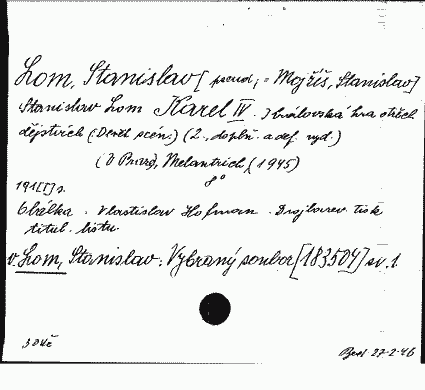 Lom, Stanislav [pseud, = Mojžíš, Stanislav]
Stanislav Lom Karel IV. Královská hra o třech
dějstvích (Devět scén.) (2., doplň. a def. vyd.)
(V Praze, Melantrich, (1945)
8°
191 [I] s.
Obálka: Vlastislav Hofman. Dvojbarev. tisk
titul. listu.
v. Lom, Stanislav: Vybraný soubor [183504] sv. 1.
30Kč
27-2-46